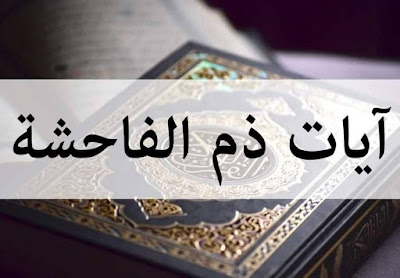 آيات ذم الفاحشة